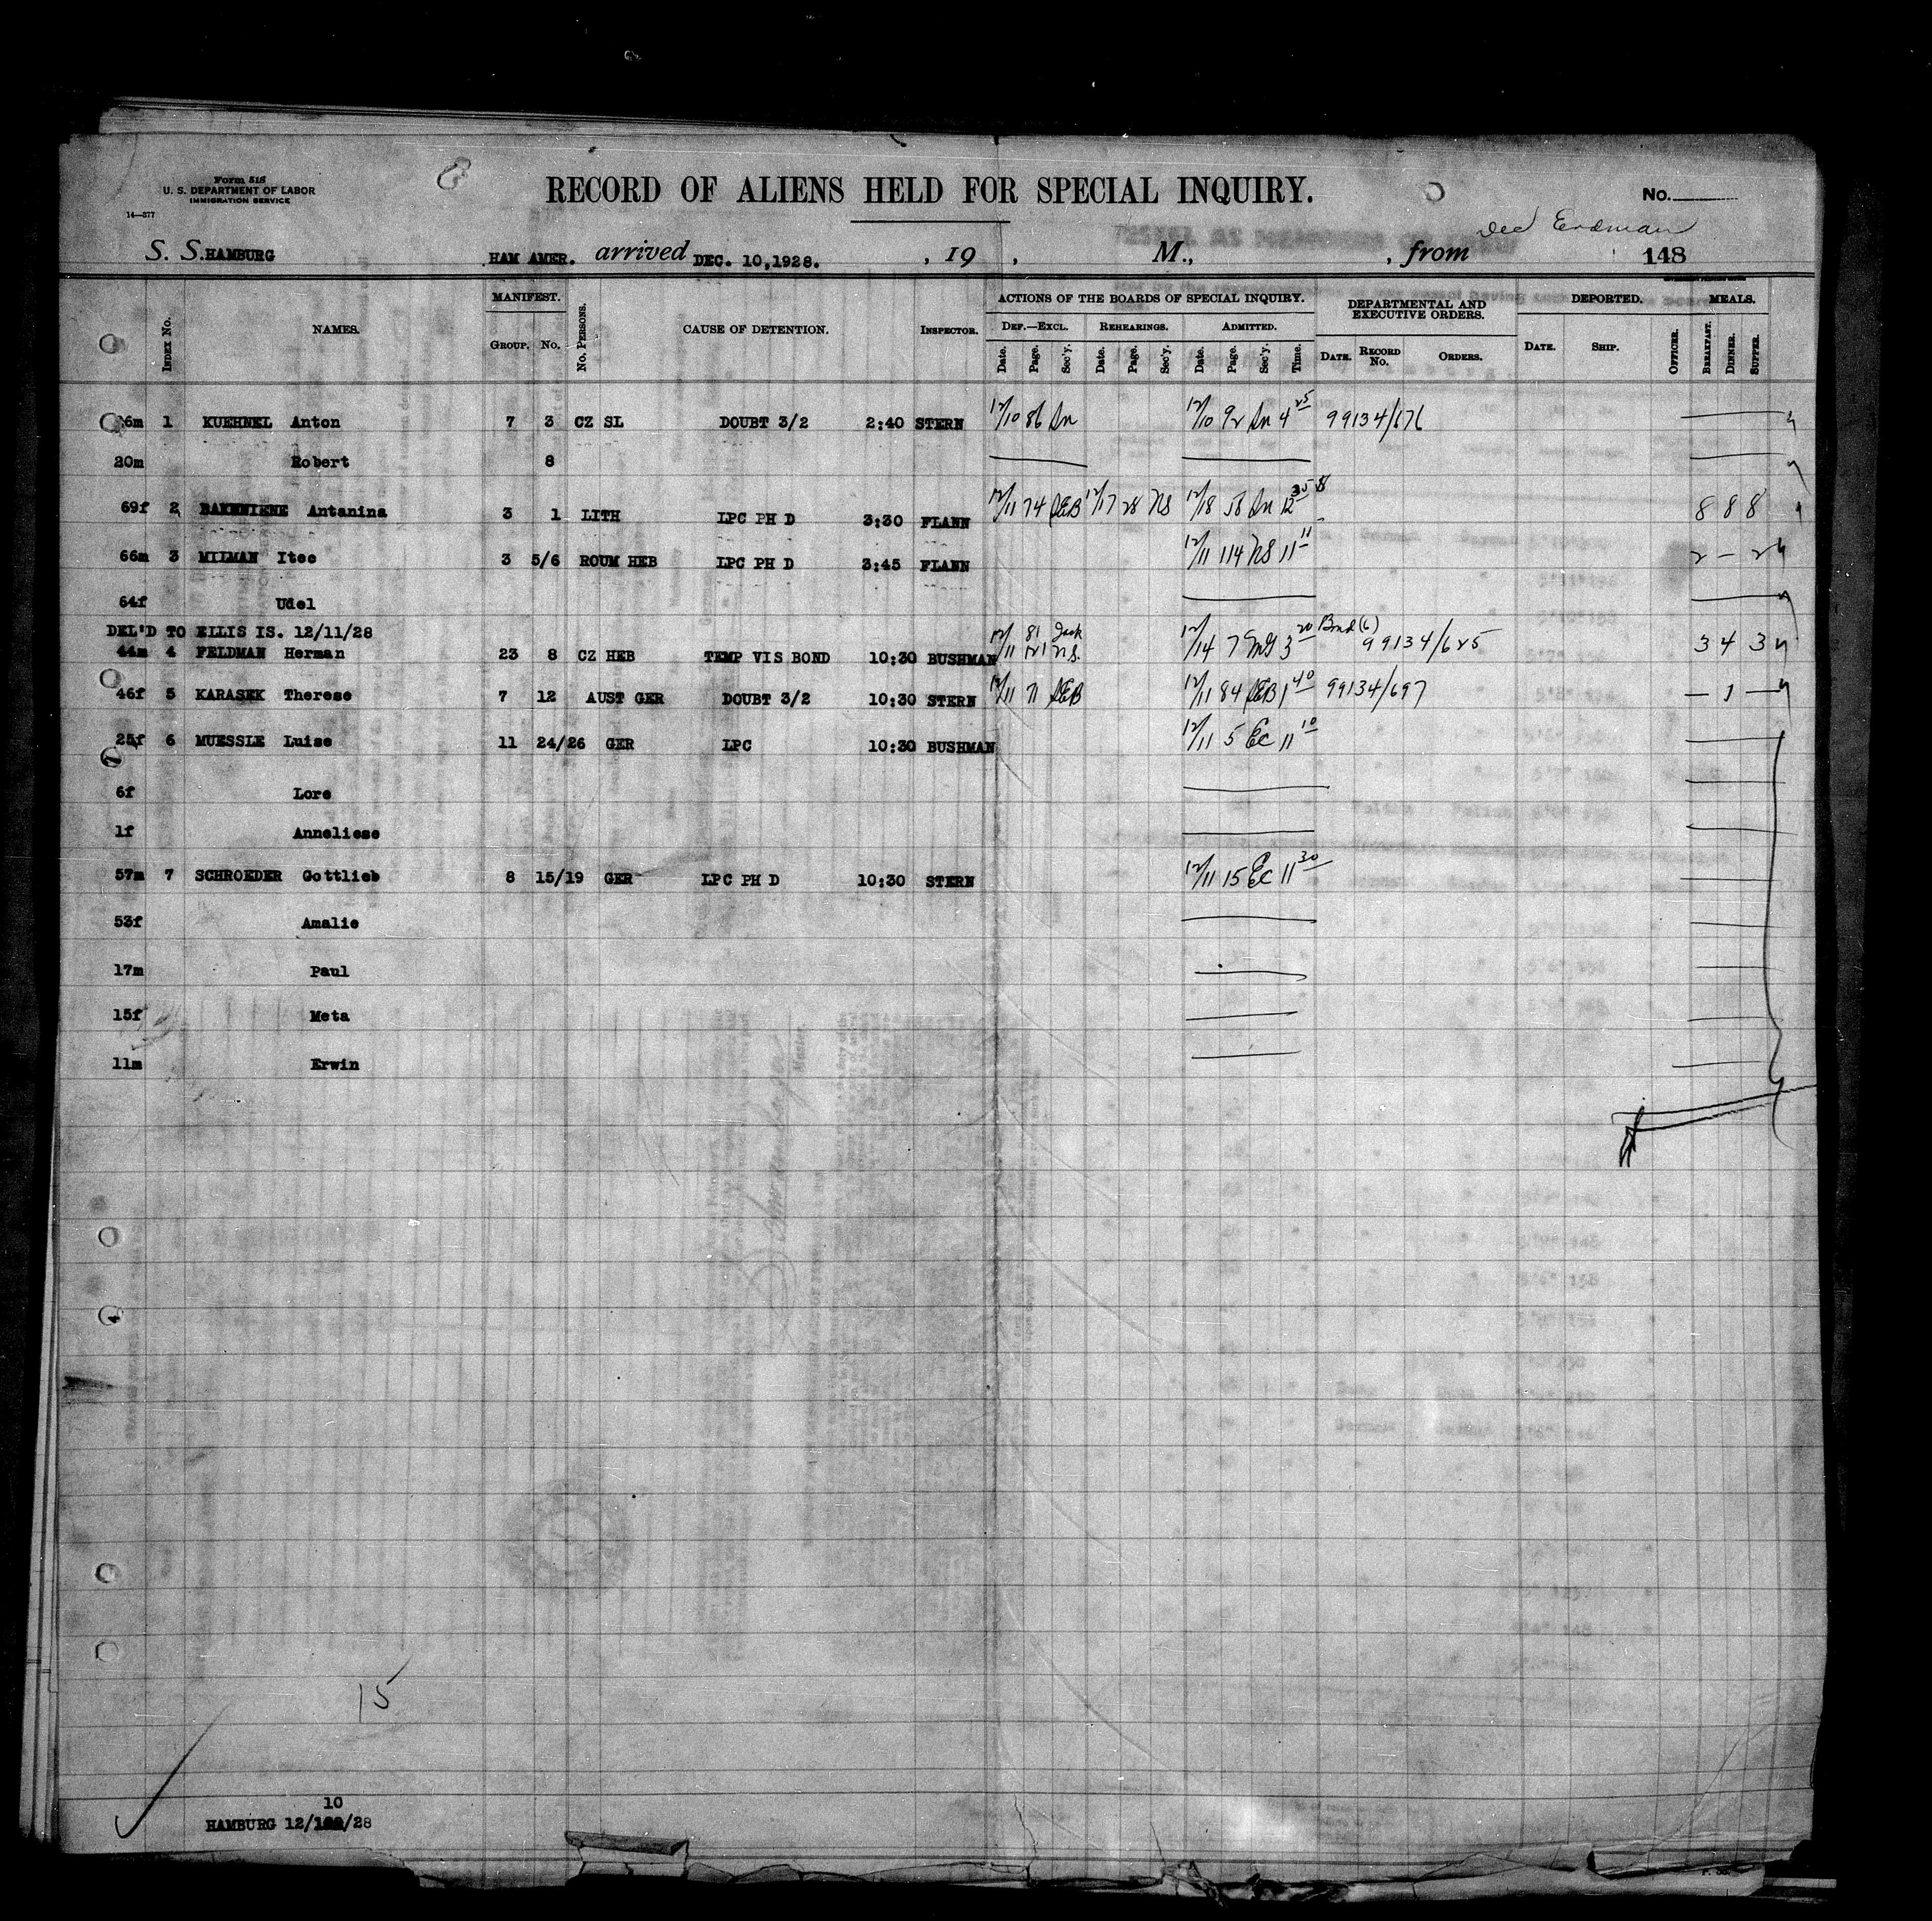 Form 518
U. S. DEPARTMENT OF LABOR
IMMIGRATION SERVICE
14—377
RECORD OF ALIENS HELD FOR SPECIAL INQUIRY.
No.
Erdman
S. S. HAMBURG HAM AMER. arrived DEC. 10,1928. , 19 , M., , from 148
INDEX No. NAMES. MANIFEST. GROUP. No. No. PERSONS. CAUSE OF DETENTION. INSPECTOR. ACTIONS OF THE BOARDS OF SPECIAL INQUIRY. DEPARTMENTAL AND EXECUTIVE ORDERS. DEPORTED. MEALS.
DEF.—EXCL. REHEARINGS. ADMITTED.
Date. Page. Sec'y. Date. Page. Sec'y. Date. Page. Sec'y. Time. DATE. RECORD No. ORDERS. DATE. SHIP. OFFICER. BREAKFAST. DINNER. SUPPER.
26m 1 KUEHNEL Anton 7 3 CZ SL DOUBT 3/2 2:40 STERN 12/10 86 12/10 92 4 25 99134/676
20m Robert 8
69f 2 Antanina 3 1 LITH LPC PH D 3:30 FLANN 12/11 74 DEB 12/17 28 NS 12/18 58 12 35 8 8 8
66m 3 MILMAN Itec 3 5/6 ROUM HEB LPC PH D 3:45 FLANN 12/11 114 NS 11 11 2 — 2
64f Udel
DEL'D TO ELLIS IS. 12/11/28
44m 4 FELDMAN Herman 23 8 CZ HEB TEMP VIS BOND 10:30 BUSHMAN 12/11 81 121 N.S. 12/14 7 3 20 Bond (6) 99134/625 3 4 3
46f 5 KARASEK Therese 7 12 AUST GER DOUBT 3/2 10:30 STERN 12/11 71 DEB 12/11 84 DEB 1 40 99134/697 — 1 —
25f 6 MUESSLE Luise 11 24/26 GER LPC 10:30 BUSHMAN 12/11 5 EC 11 10
6f Lore
1f Anneliese
57m 7 SCHROEDER Gottlieb 8 15/19 GER LPC PH D 10:30 STERN 12/11 15 EC 11 30
53f Amalie
17m Paul
15f Meta
11m Erwin
15
10
HAMBURG 12/ /28